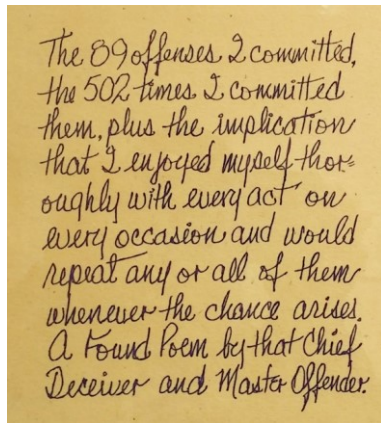 The 89 offenses I committed,
the 502 times I committed
them, plus the implication
that I enjoyed myself thor=
oughly with every act on
every occasion and would
repeat any or all of them
whenever the chance arises.
A Found Poem by that Chief
Deceiver and Master Offender.